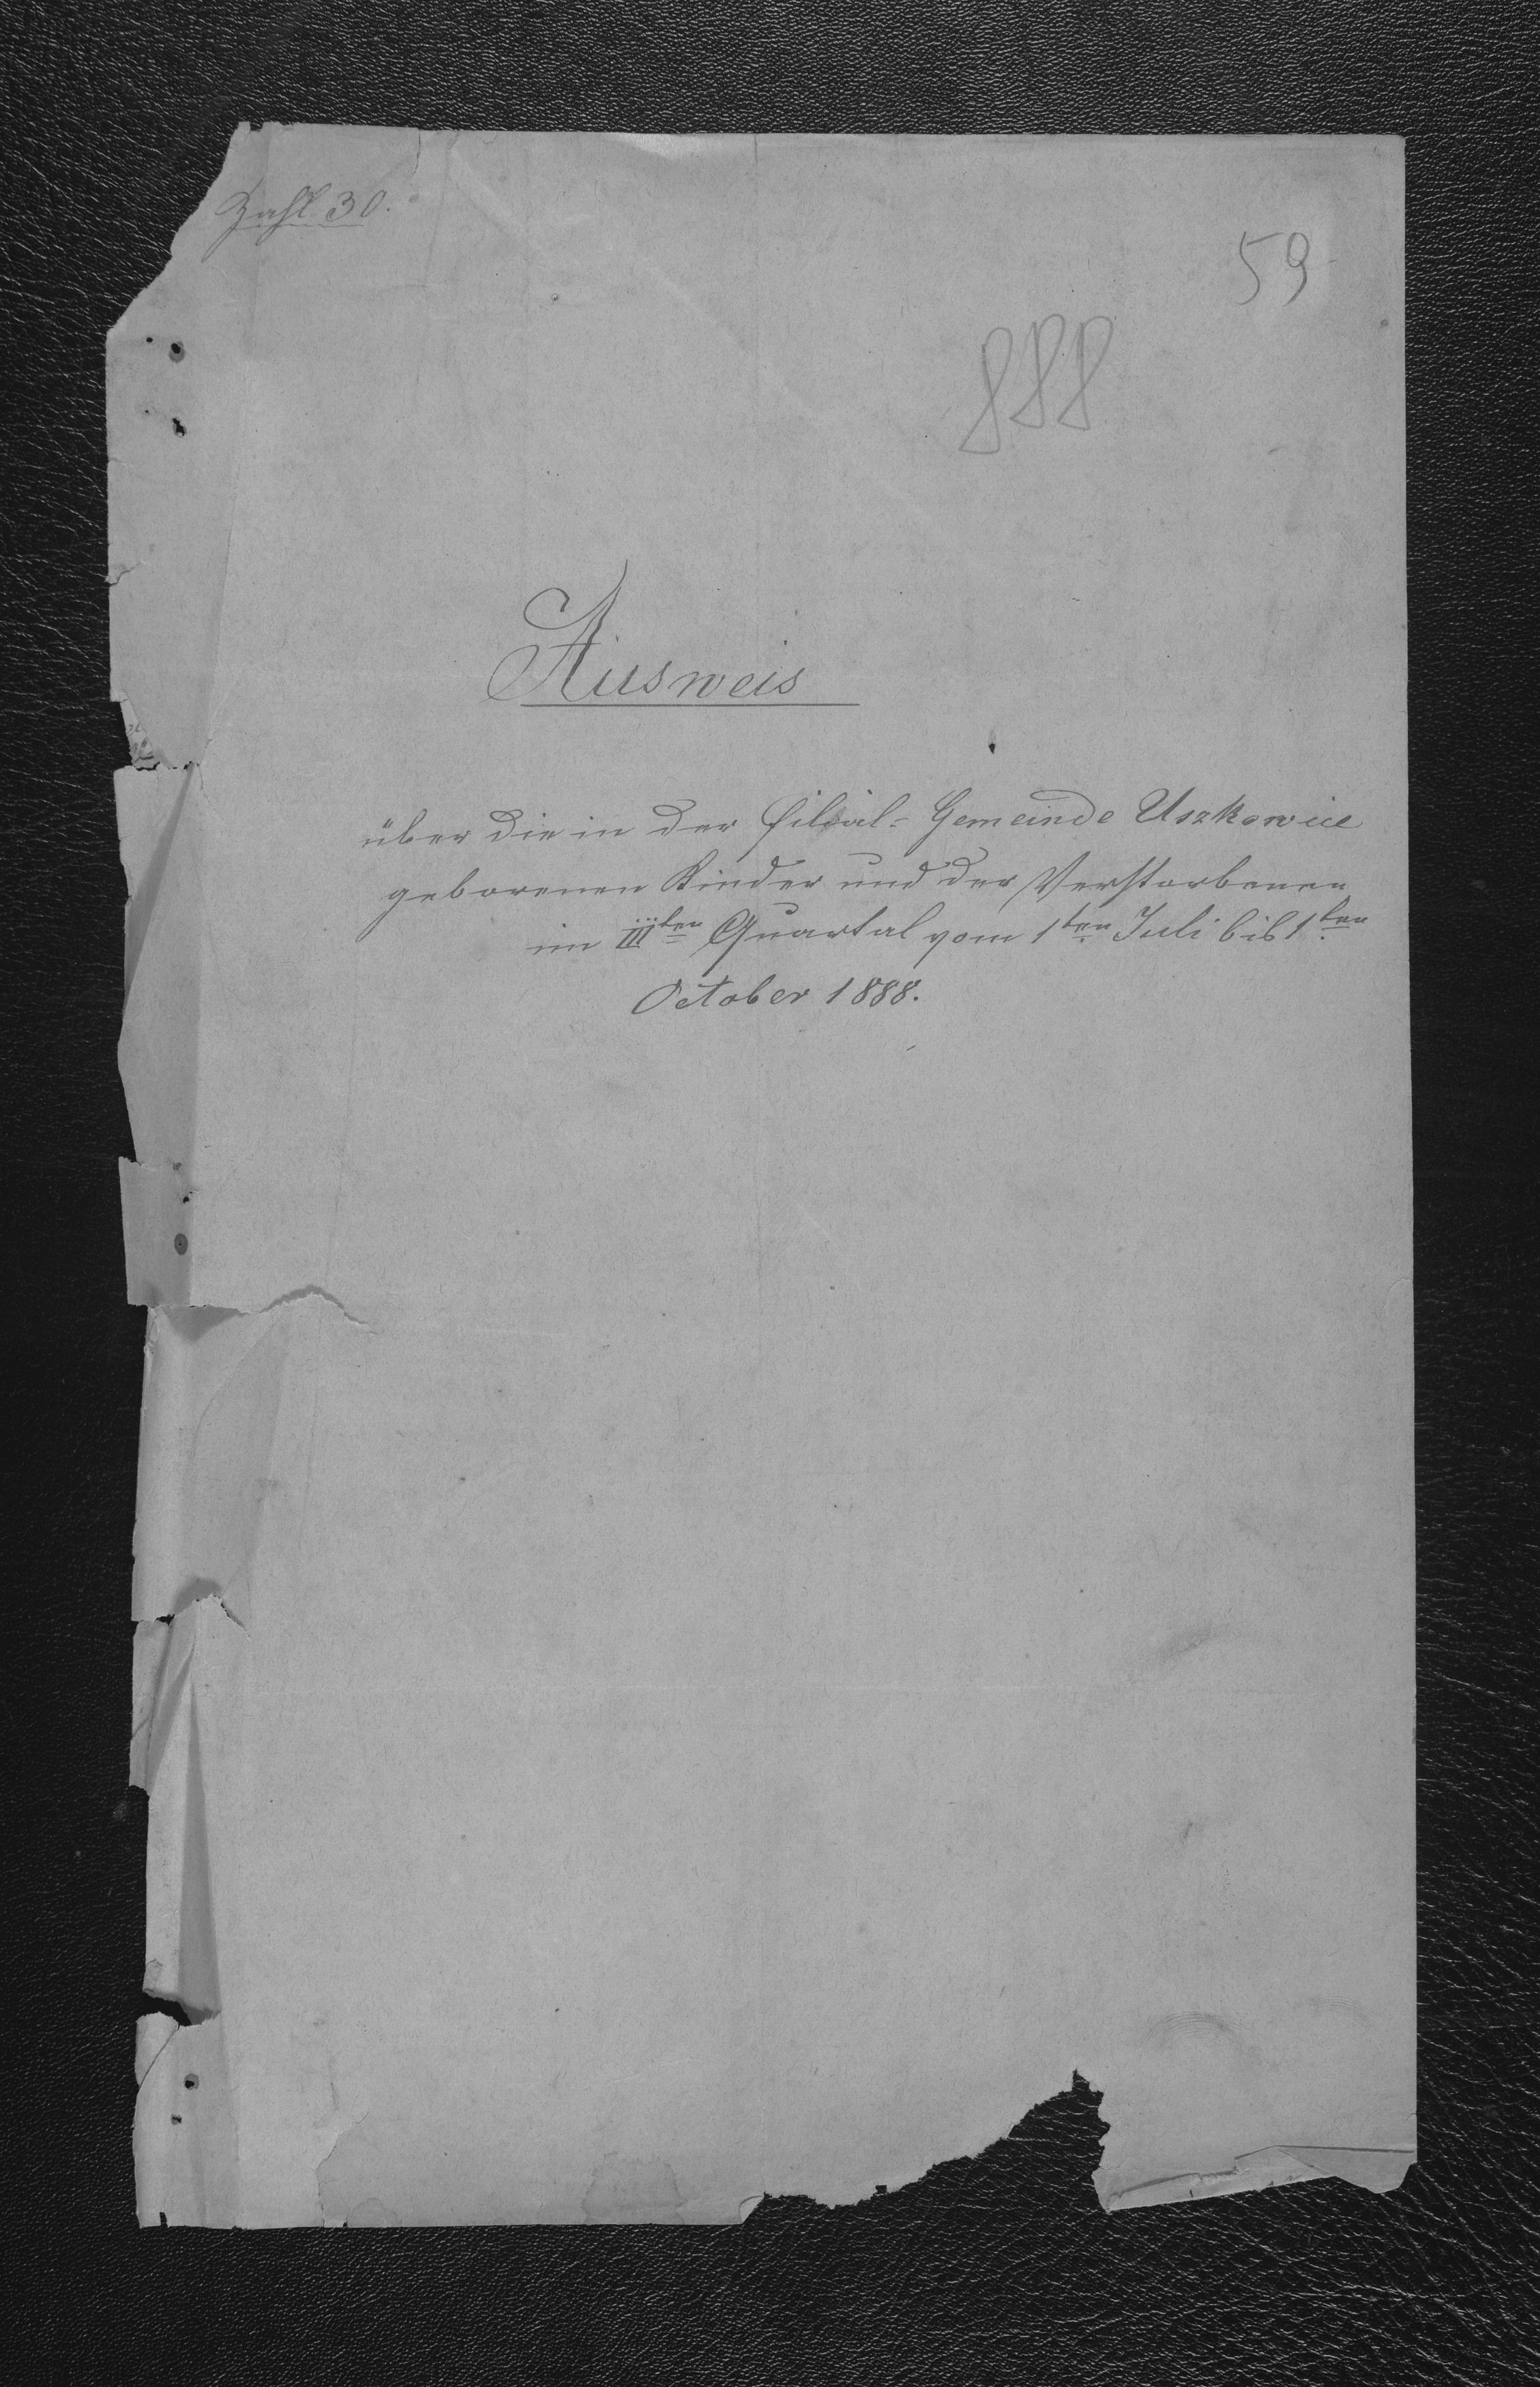 Zahl 30.
59
888
Ausweis
über die in der Filial= Gemeinde Uszkowice
geborenen Kinder und der Verstorbenen
im III ten Quartal vom 1ten Juli bis 1ten
October 1888.